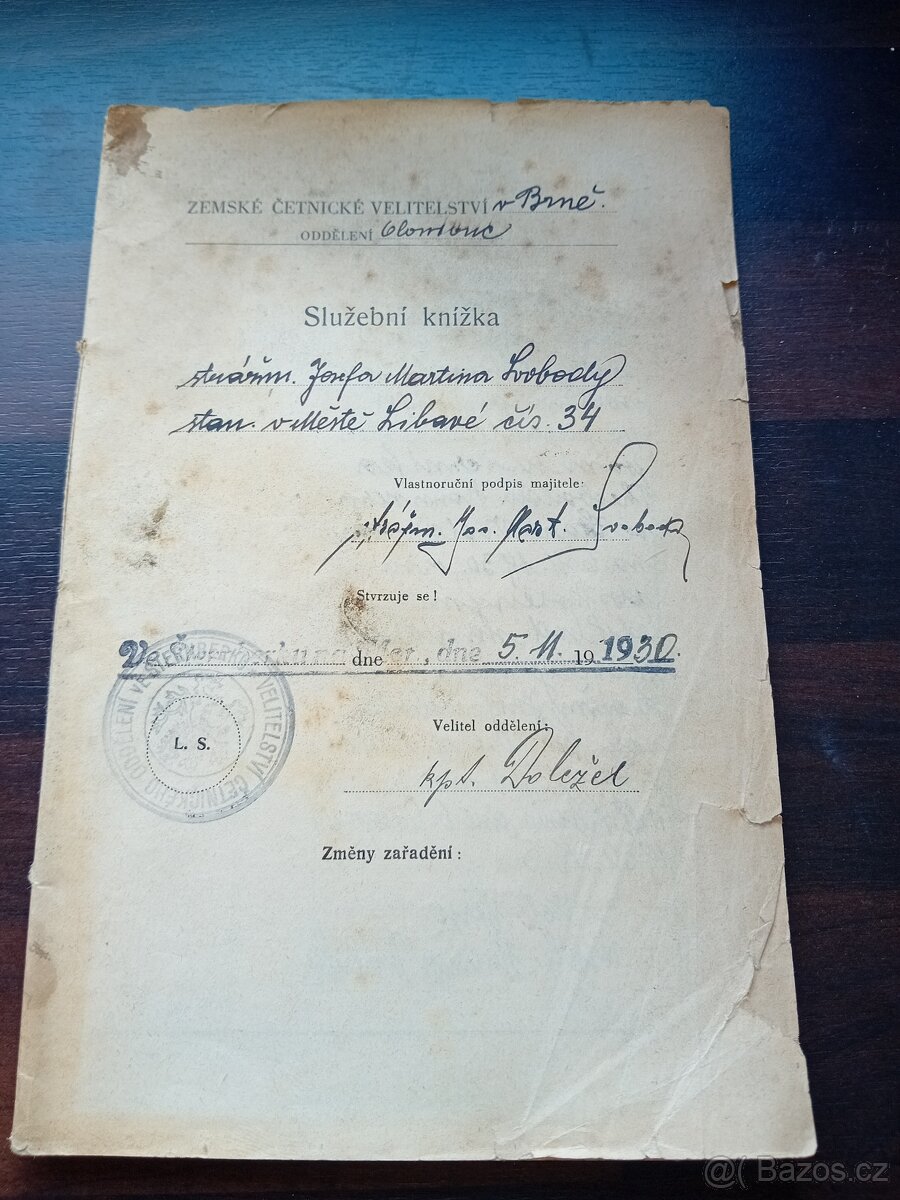 ZEMSKÉ ČETNICKÉ VELITELSTVÍ v Brně.
ODDĚLENÍ Olomouc
Služební knížka
strážm. Josefa Martina Svobody
stan. v Městě Libavé čís. 34
Vlastnoruční podpis majitele:
strážm. Jos. Mart. Svoboda
Stvrzuje se!
Ve dne , dne 5. 11. 19 1930.
VELITELSTVÍ ČETNICKÉHO ODDĚLENÍ VE
L. S.
Velitel oddělení:
kpt. Doležel
Změny zařadění:
@( Bazos.cz